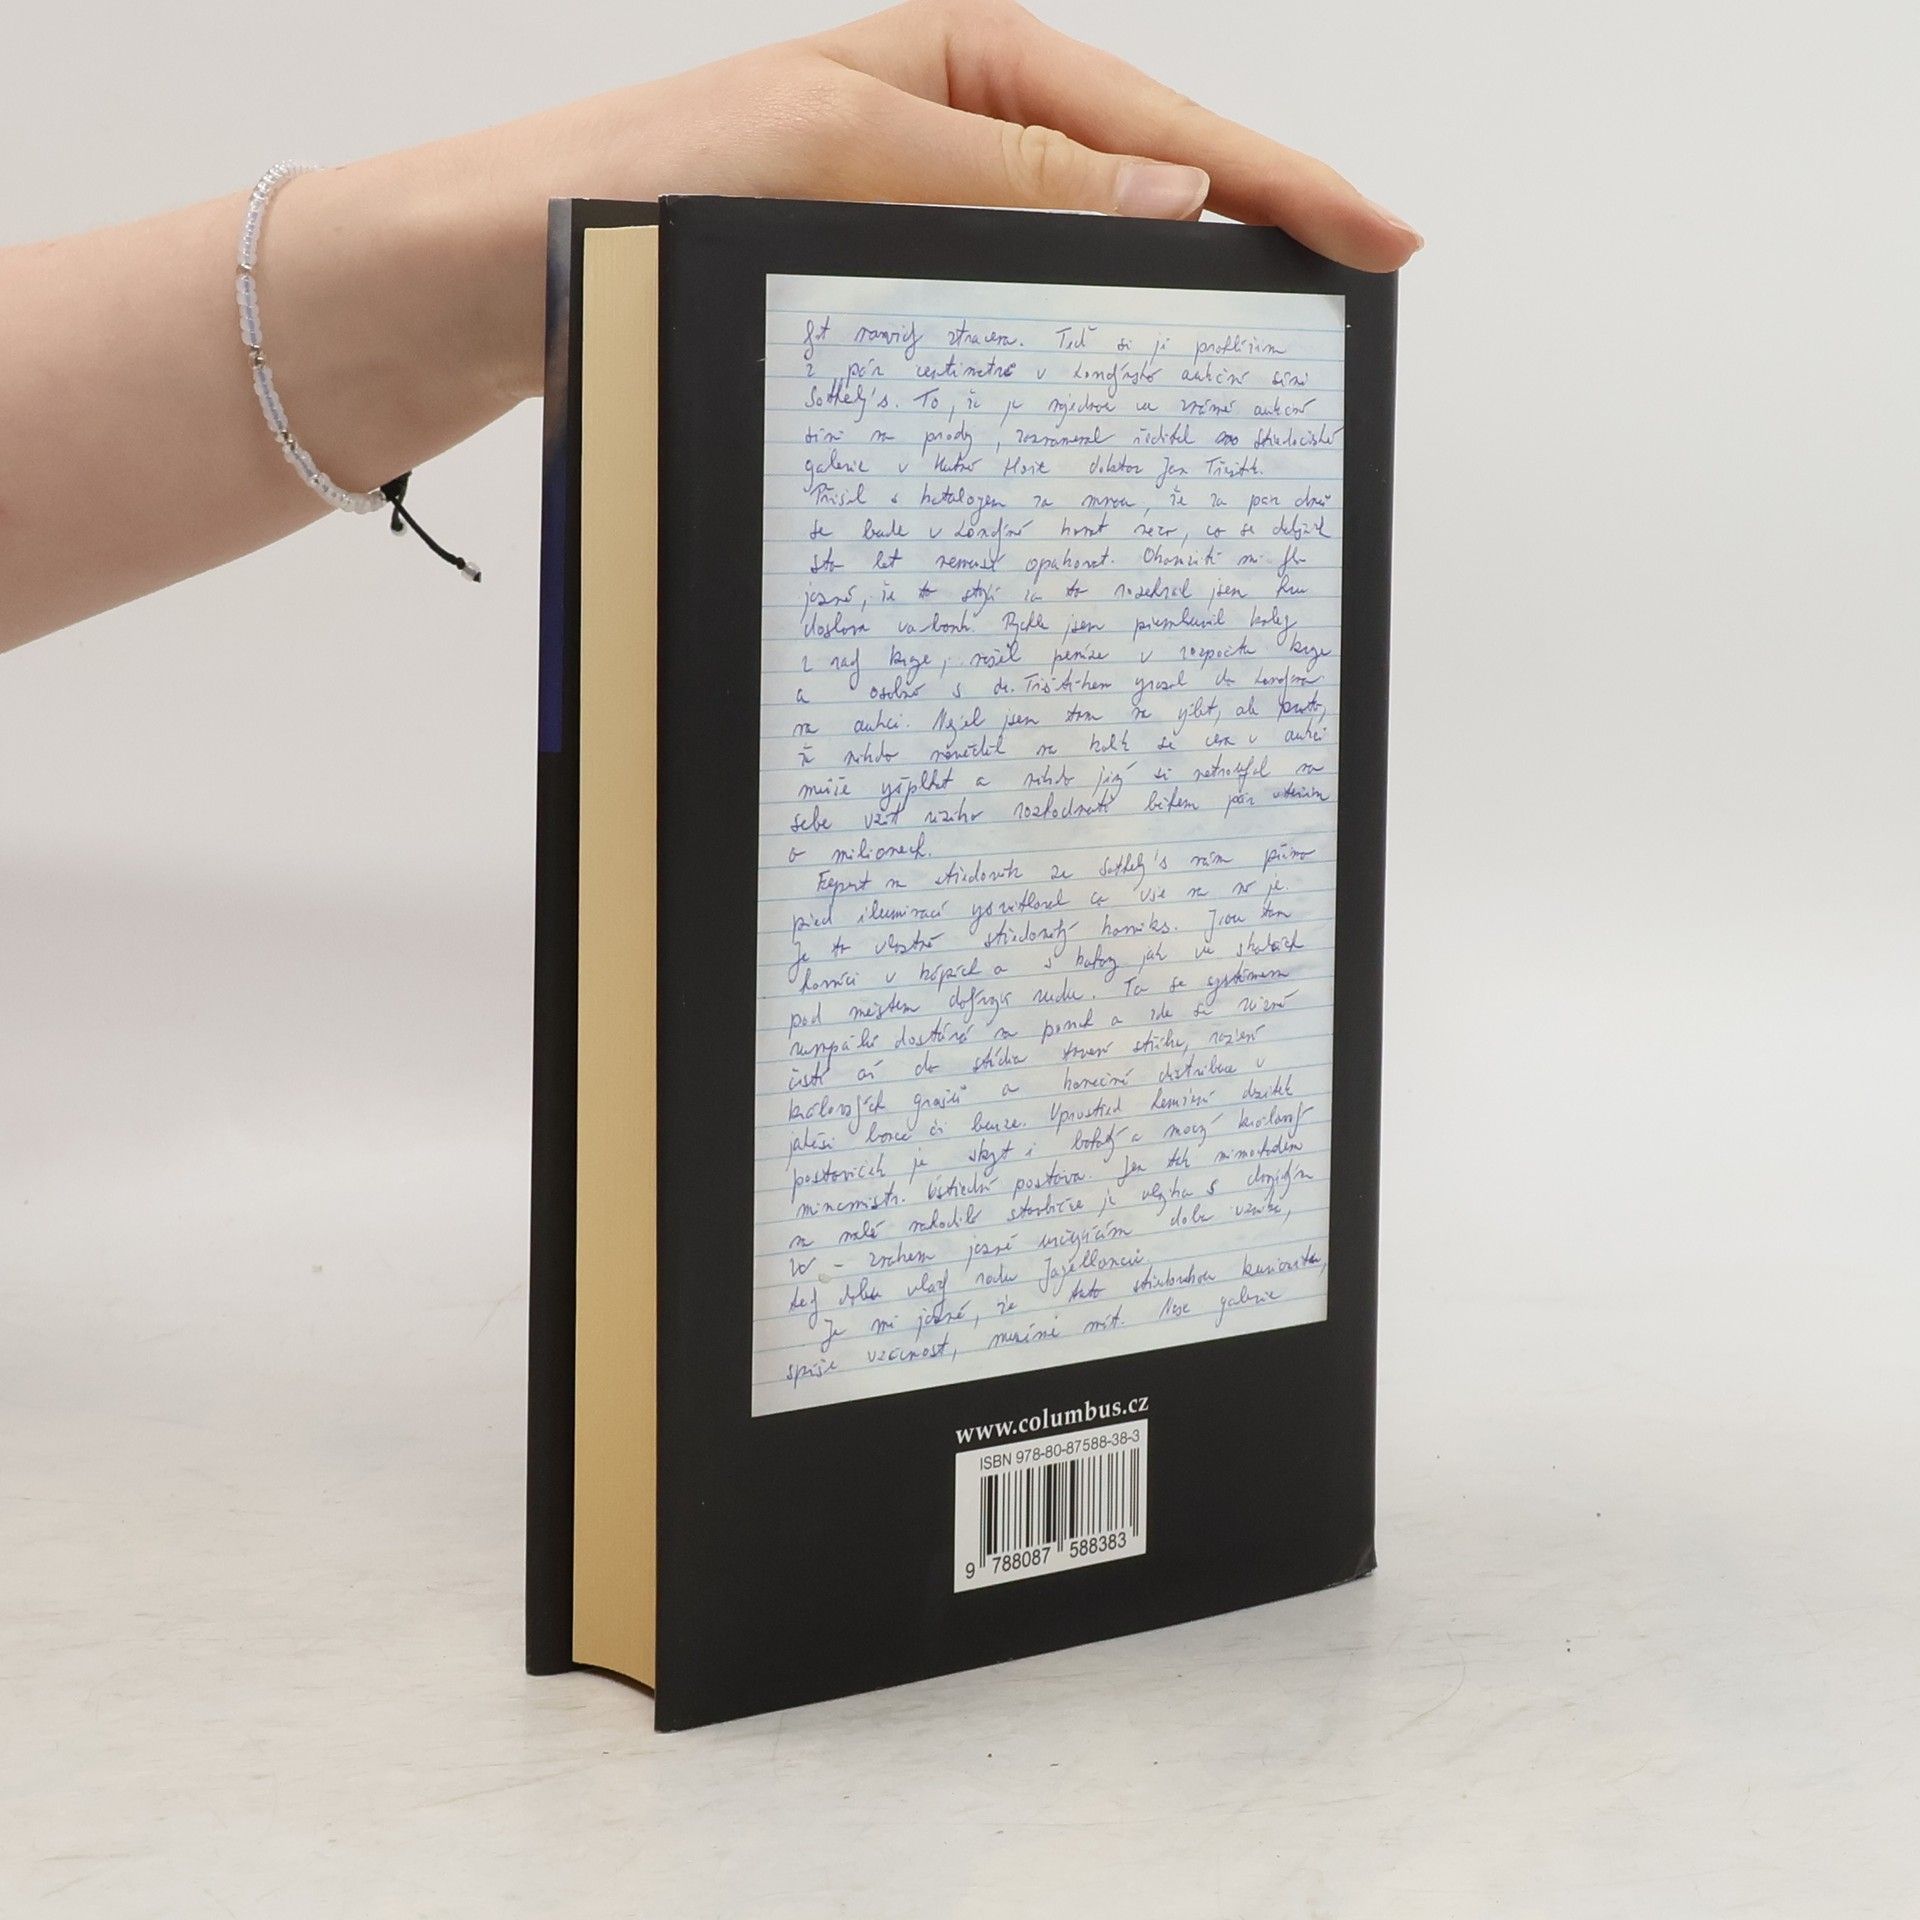 být navždy ztracena. Teď si ji prohlížím
z pár centimetrů v Londýnské aukční síni
Sotheby's. To, že je najednou ve známé aukční
síni na prodej, zaznamenal ředitel středočeské
galerie v Kutné Hoře doktor Jan Třeštík.
Přišel s katalogem za mnou, že za pár dnů
se bude v Londýně konat něco, co se dalších
sto let nemusí opakovat. Okamžitě mi bylo
jasné, že to stojí za to rozehrál jsem hru
doslova va-bank. Rychle jsem přemluvil kolegy
z rady kraje, našel peníze v rozpočtu kraje
a osobně s dr. Třeštíkem vyrazil do Londýna
na aukci. Nejel jsem tam na výlet, ale proto,
že nikdo nevěděl na kolik se cena v aukci
může vyšplhat a nikdo jiný si netroufal na
sebe vzít riziko rozhodnutí během pár vteřin
o milionech.
Expert na středověk ze Sotheby's nám přímo
před iluminací vysvětloval co vše na ní je.
Je to vlastně středověký komiks. Jsou tam
horníci v kápích a s kahany jak ve skalách
pod městem dobývají rudu. Ta se systémem
rumpálů dostává na povrch a zde se různě
čistí až do stádia tavení stříbra, ražení
královských grošů a konečné distribuce v
jakési burze. Uprostřed hemžení desítek
postaviček je skryt i bohatý a mocný královský
mincmistr. Ústřední postava. Jen tak mimochodem
na malé nahodilé stavbičce je vlajka s dvojitým
W - znakem jasně určujícím dobu vzniku,
tedy dobu vlády rodu Jagellonců.
Je mi jasné, že tuto středověkou kuriozitu,
spíše vzácnost, musíme mít. Naše galerie
www.columbus.cz
ISBN 978-80-87588-38-3
9 788087 588383